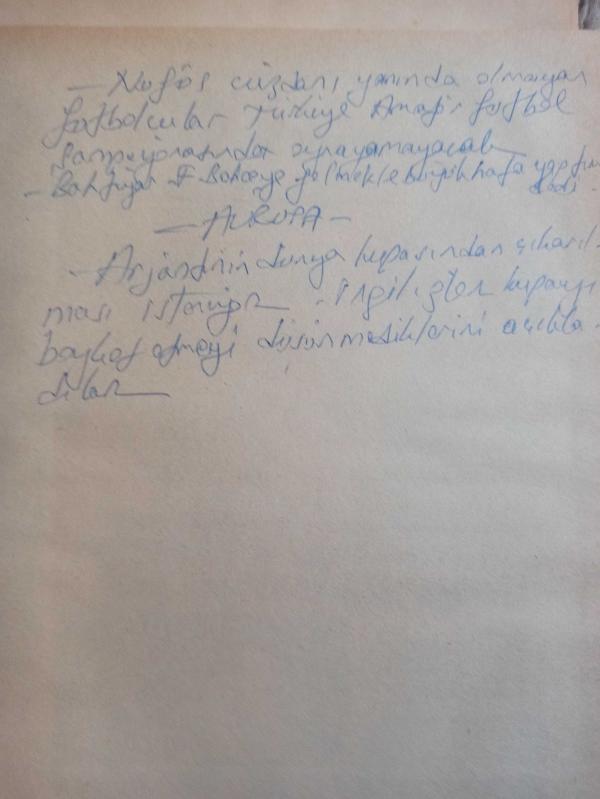 — Nufüs cüzdanı yanında olmayan
futbolcular Türkiye Amatör futbol
Şampiyonasında oynayamayacak
- Bahtiyar F. Bahçeye gelmekle büyük hata yaptım
dedi.
— AVRUPA —
- Arjantinin dünya kupasından çıkarıl-
ması isteniyor. İngilizler kupayı
boykot etmeyi düşünmediklerini açıkla-
dılar